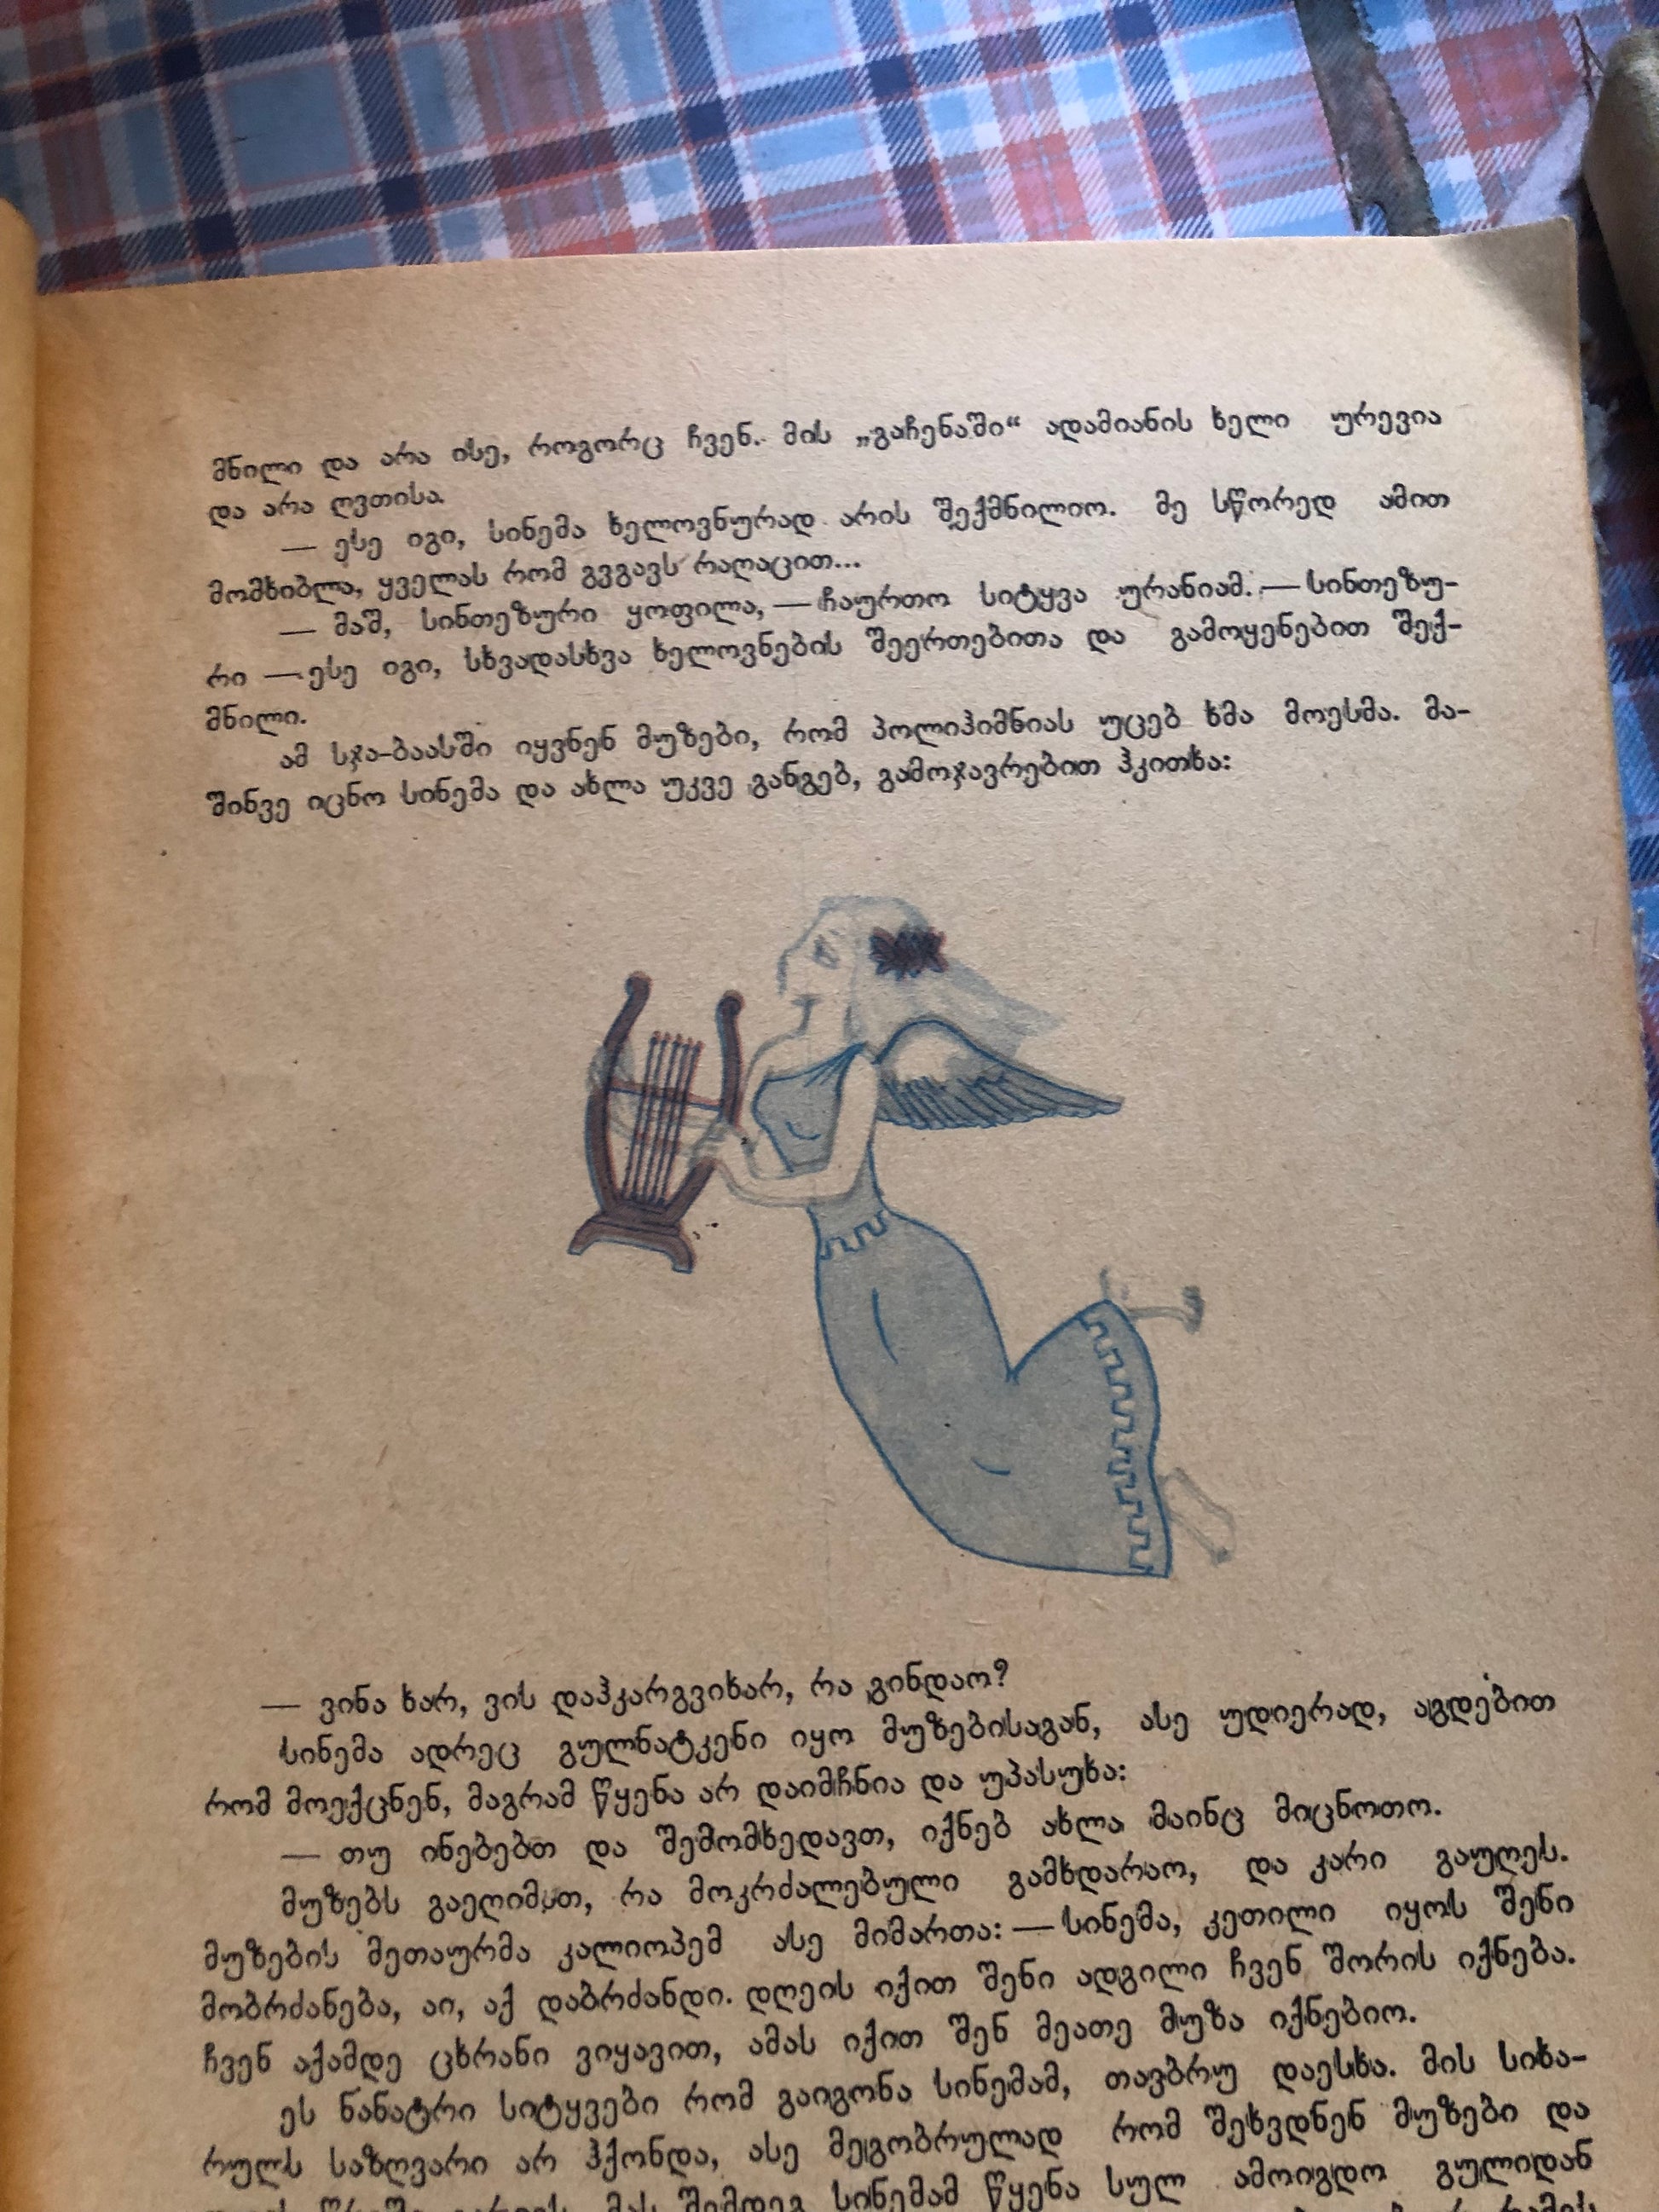 მნილი და არა ისე, როგორც ჩვენ. მის „გაჩენაში“ ადამიანის ხელი ურევია
და არა ღვთისა.
— ესე იგი, სინემა ხელოვნურად არის შექმნილიო. მე სწორედ ამით
მომხიბლა, ყველას რომ გვგავს რაღაცით...
— მაშ, სინთეზური ყოფილა, — ჩაურთო სიტყვა ურანიამ. — სინთეზუ-
რი — ესე იგი, სხვადასხვა ხელოვნების შეერთებითა და გამოყენებით შექ-
მნილი.
ამ სჯა-ბაასში იყვნენ მუზები, რომ პოლიჰიმნიას უცებ ხმა მოესმა. მა-
შინვე იცნო სინემა და ახლა უკვე განგებ, გამოჯავრებით ჰკითხა:
— ვინა ხარ, ვის დაჰკარგვიხარ, რა გინდაო?
სინემა ადრეც გულნატკენი იყო მუზებისაგან, ასე უდიერად, აგდებით
რომ მოექცნენ, მაგრამ წყენა არ დაიმჩნია და უპასუხა:
— თუ ინებებთ და შემომხედავთ, იქნებ ახლა მაინც მიცნოთო.
მუზებს გაეღიმათ, რა მოკრძალებული გამხდარაო, და კარი გაუღეს.
მუზების მეთაურმა კალიოპემ ასე მიმართა: — სინემა, კეთილი იყოს შენი
მობრძანება, აი, აქ დაბრძანდი. დღეის იქით შენი ადგილი ჩვენ შორის იქნება.
ჩვენ აქამდე ცხრანი ვიყავით, ამას იქით შენ მეათე მუზა იქნებიო.
ეს ნანატრი სიტყვები რომ გაიგონა სინემამ, თავბრუ დაესხა. მის სიხა-
რულს საზღვარი არ ჰქონდა, ასე მეგობრულად რომ შეხვდნენ მუზები და
მას შემდეგ სინემამ წყენა სულ ამოიგდო გულიდან